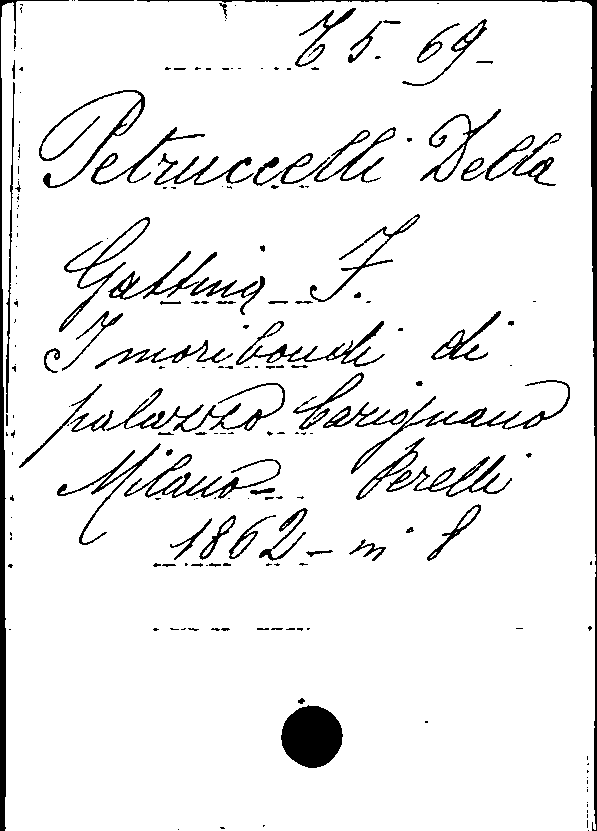 C 5. 69-
Petruccelli Della
Gattina F.
I moribondi di
palazzo Carignano
Milano - Perelli
1862 - in 8